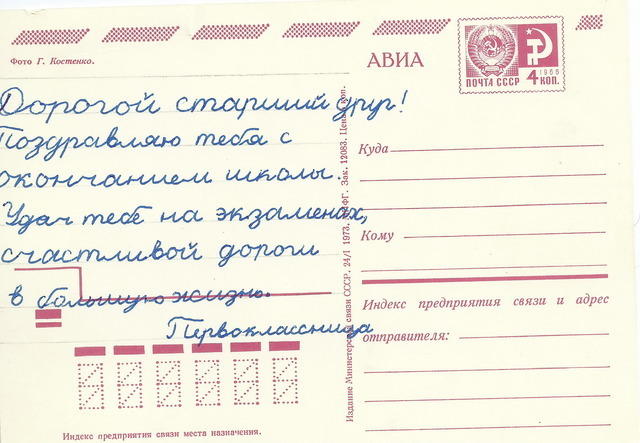 Фото Г. Костенко.
АВИА
ПОЧТА СССР
1966
4 КОП.
Дорогой старший друг!
Поздравляю тебя с
окончанием школы.
Удач тебе на экзаменах,
счастливой дороги
в большую жизнь.
Первоклассница
Куда
Кому
Индекс предприятия связи и адрес
отправителя:
Издание Министерства связи СССР. 24/I 1973. Зак. 12083. Цена коп.
Индекс предприятия связи места назначения.